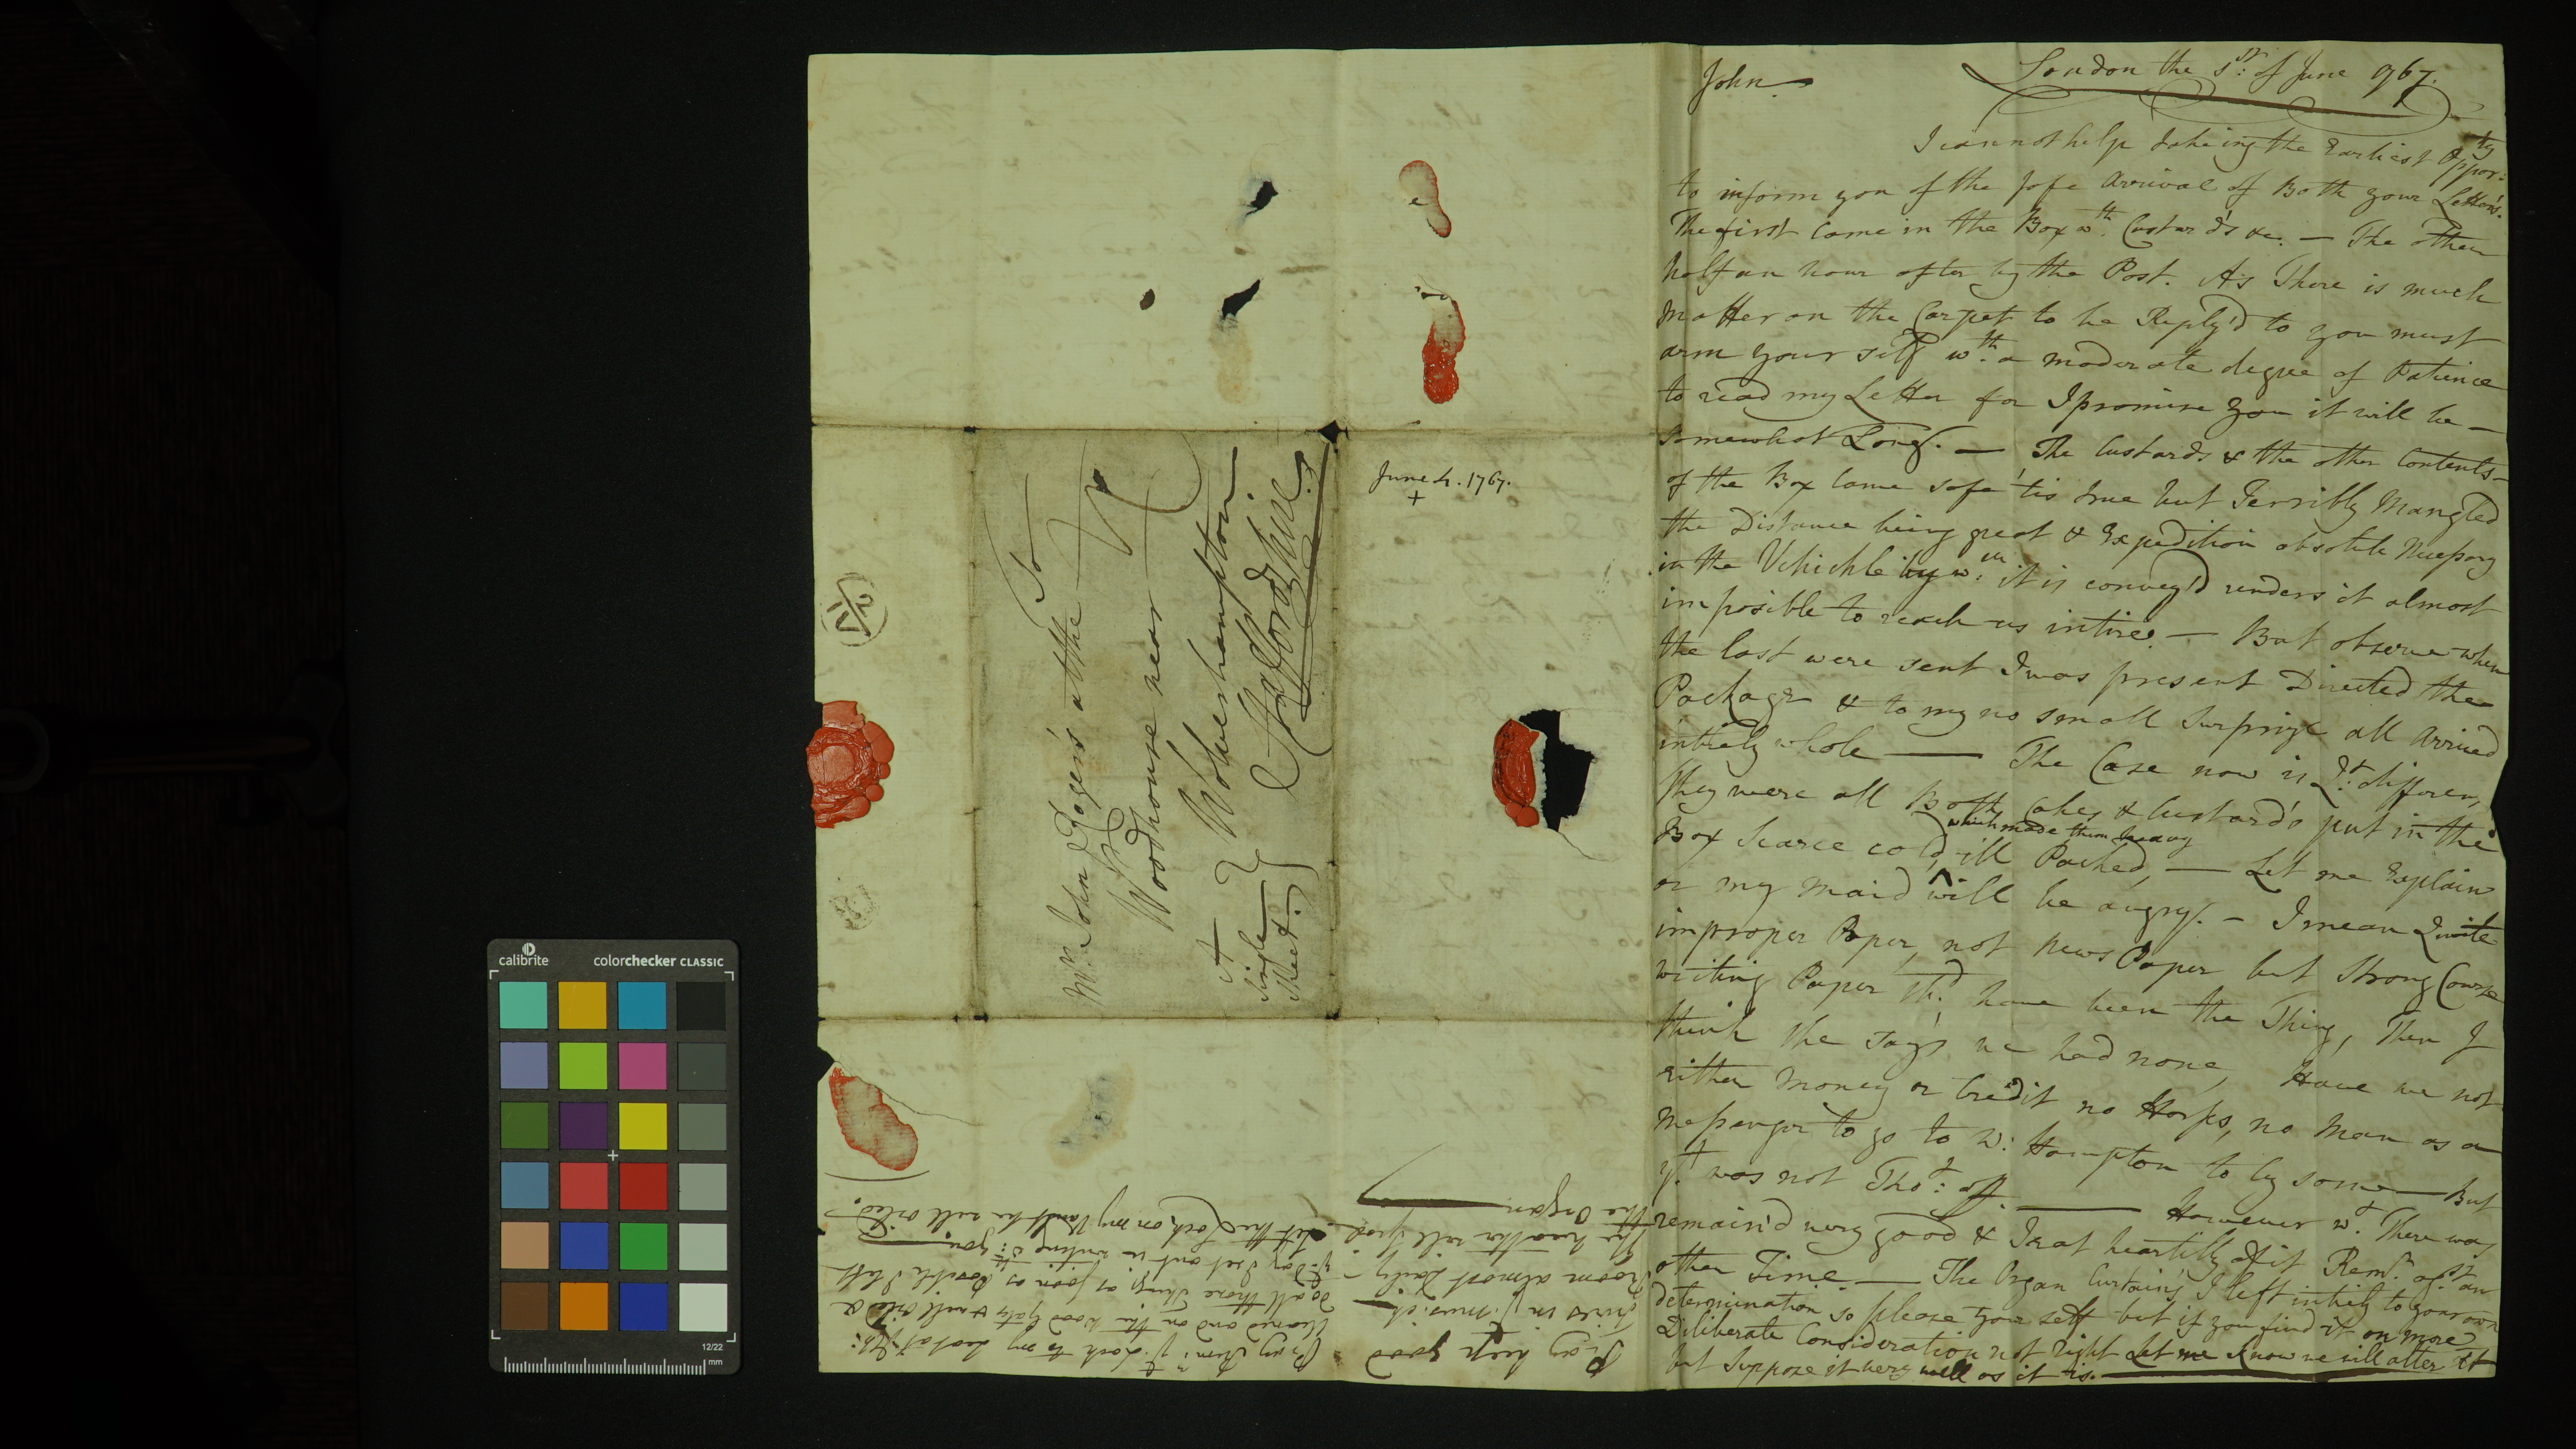 John
London the 5th: of June 1767.
I cannot help takeing the Earliest Oppor:ty
to inform you of the safe Arrival of Both your Letters.
The first Came in the Box wth. Custard's &c. — The other
half an hour after by the Post. As There is much
matter on the Carpet to be Reply'd to you must
arm your self wth. a moderate degree of Patience
to read my Letter for I promise you it will be —
somewhat Long. — The Custards & the other Contents —
of the Box Came safe 'tis true but Terribly Mangled
the Distance being great & Expedition absolute Necessary
in the Vehichle by wch. it is convey'd renders it almost
imposible to reach us intire. — But observe when
the last were sent I was present Directed the
Package & to my no small Surprize all Arrived
intirely whole — The Case now is Qt. differen,
they were all Both Cakes & Custard's put in the
Box Scarce cold, which made them heavy ill Packed, — Let me Explain
or my Maid will be angry. — I mean Quite
improper Paper, not News Paper but Strong Course
writing Paper shd. have been the Thing, Then I
think she say's we had none, Have we not
either Money or Credit no Horses, no Man as a
Messenger to go to W: Hampton to by some — But
yt. was not Thot: of — However wt. There was
remain'd very good & I eat heartilly of it Remr. agst. an
other Time. — The Organ Curtain's I left intirely to your own
determination so please your self but if you find it on more
Diliberate Consideration not right Let me know we will alter it
but Suppose it very well as it is.
June 4. 1767.
+
To
Mr. John Rogers at the
Woodhouse near
Wolverhampton
Staffordshire.
A
Single
Sheet.
Pray keep good
Fires in ye. Musick
Room almost Daily
the weather will spoil
the Organ
Pray Remr. ye. Lock to my
cleaned and on the wood gate & well oiled &
do all those things as soon as Possible I left
yt. Day I set out in writing wth: you.
Let the Lock on my Vault be well oiled.